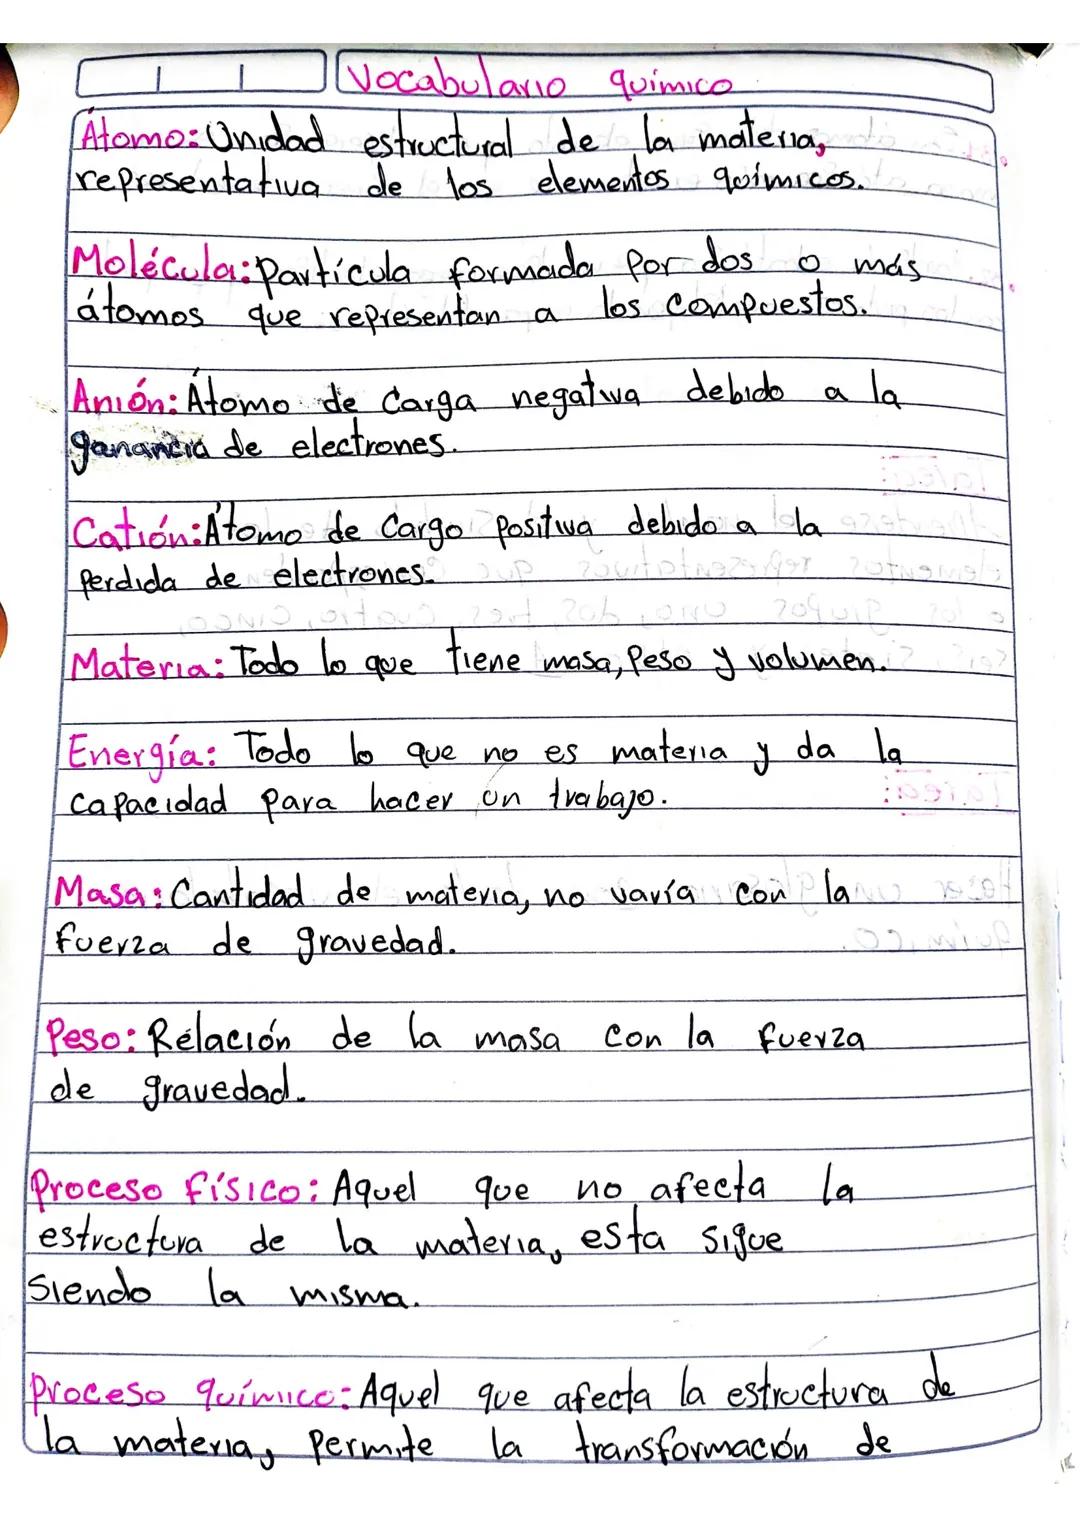 Vocabulario químico
Átomo: Unidad estructural de la materia,
representativa de los elementos químicos.
Molécula: Partícula formada por dos o más
átomos que representan a los compuestos.
Anión: Átomo de carga negativa debido a la
ganancia de electrones.
Catión: Átomo de Cargo positiva debido a la
perdida de electrones.
Materia: Todo lo que tiene masa, peso y volumen.
Energía: Todo lo que no es materia y da la
capacidad para hacer un trabajo.
Masa: Cantidad de materia, no varía con la
fuerza de gravedad.
Peso: Relación de la masa con la fuerza
de gravedad.
Proceso físico: Aquel que no afecta la
estructura de la materia, esta sigue
siendo la misma.
Proceso químico: Aquel que afecta la estructura de
la materia, permite la transformación de